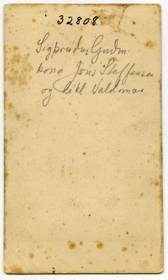 32808
Sigþrúður Guðm
kona Jóns Steffensen
og litli Valdemar